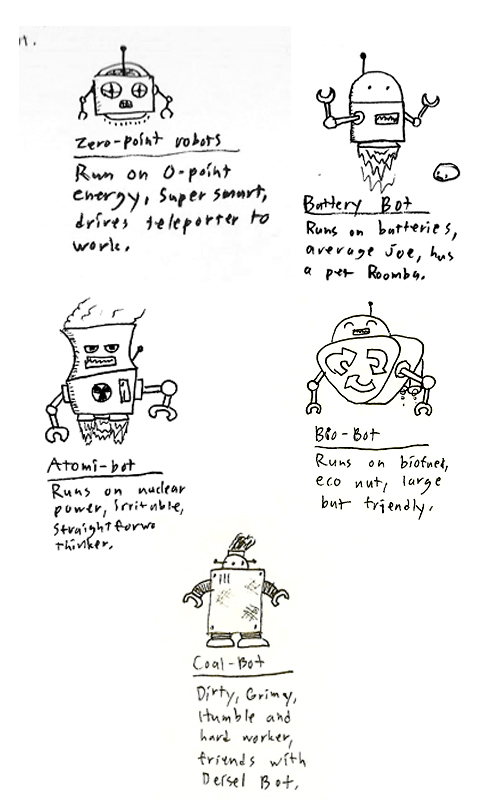 Zero-point robots
Run on 0-point
energy, Super smart,
drives teleporter to
work.
Battery Bot
Runs on batteries,
average joe, has
a pet Roomba.
Atomi-bot
Runs on nuclear
power, irritable,
straightforwo
thinker.
Bio-Bot
Runs on biofuel,
eco nut, large
but friendly.
Coal-Bot
Dirty, Grimy,
Humble and
hard worker,
friends with
Deisel Bot.